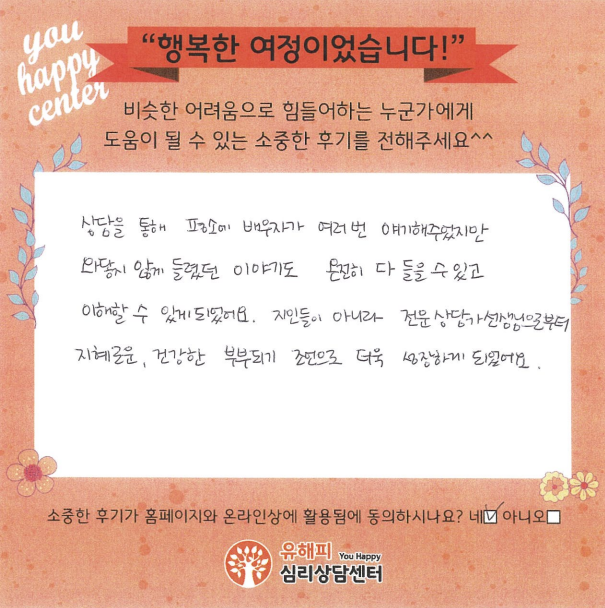 you
happy
center
“행복한 여정이었습니다!”
비슷한 어려움으로 힘들어하는 누군가에게
도움이 될 수 있는 소중한 후기를 전해주세요^^
상담을 통해 평소에 배우자가 여러번 얘기해주었지만
와닿지 않게 들렸던 이야기도 온전히 다 들을 수 있고
이해할 수 있게되었어요. 지인들이 아니라 전문상담가선생님으로부터
지혜로운, 건강한 부부되기 조언으로 더욱 성장하게 되었어요.
소중한 후기가 홈페이지와 온라인상에 활용됨에 동의하시나요? 네☑ 아니오☐
유해피 You Happy
심리상담센터